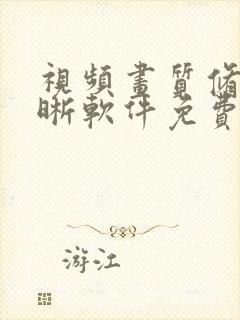 視頻畫質修
晰軟件免費
游江